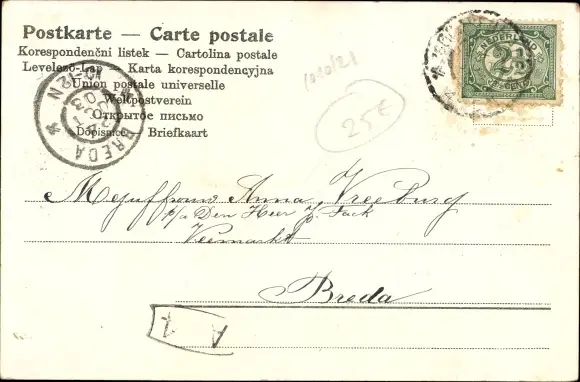 Postkarte — Carte postale
Korespondenčni listek — Cartolina postale
Levelező-Lap — Karta korespondencyjna
Union postale universelle
Weltpostverein
Открытое письмо
Dopisnice Briefkaart
BREDA
NEDERLAND
2½
CENT
25€
Mejuffrouw Anna Vreeburg
p/a Den Heer J. Fack
Veemarkt
Breda
A 1